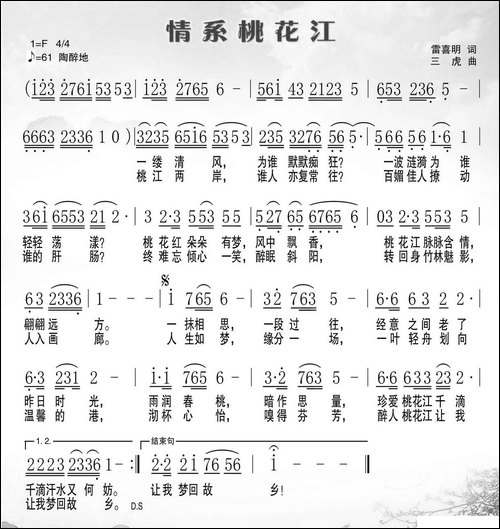 情系桃花江
1=F 4/4
♪=61 陶醉地
雷喜明 词
三虎 曲
(1̇2̇3̇ 2̇761̇53 53 | 1̇2̇3̇ 2̇765 6 - | 561̇ 43 2123 5 - | 653 236 5 - |
6663 2336 1 0 ) | 3235 6515 3 53 | 235 3276 56 5 · | 566 56 1·6 1 |
一缕 清 风， 为谁 默默痴 狂？ 一波 涟漪 为 谁
桃江 两 岸， 谁人 亦复常 往？ 百媚 佳人 撩 动
361̇ 6553 21 2 · | 3 2·3 553 55 | 5 27 65 6765 6 | 0353 2355 3 |
轻轻 荡 漾？ 桃 花红 朵朵 有梦，风中 飘 香， 桃 花江脉脉含 情，
谁的 肝 肠？ 终 难忘 倾心 一笑，醉眠 斜 阳， 转 回身竹林魅 影，
63 2336 1 - - - | 1̇ 765 6 - | 3·2 723 5 - | 6·6 63 2 22 |
翩翩 远 方。 一 抹相 思， 一段 过 往， 经意 之间 老了
人入 画 廊。 人 生如 梦， 缘分 一 场， 一叶 轻舟 划向
6·3 231 2 - | 1̇·1̇ 765 6 - | 3·2 723 5 - | 6·6 633 2 23 |
昨日 时 光， 雨润 春 桃， 暗作 思 量， 珍爱 桃花江 千滴
温馨 的 港， 沏杯 心 怡， 嗅得 芬 芳， 醉人 桃花江 让我
1. 2. 结束句
2223 2336 1 - :‖ 2·2 21̇ 7656 | 1̇ - - - ‖
千滴汗水又 何 妨。 让我 梦回故 乡！
让我梦回故 乡。 D.S